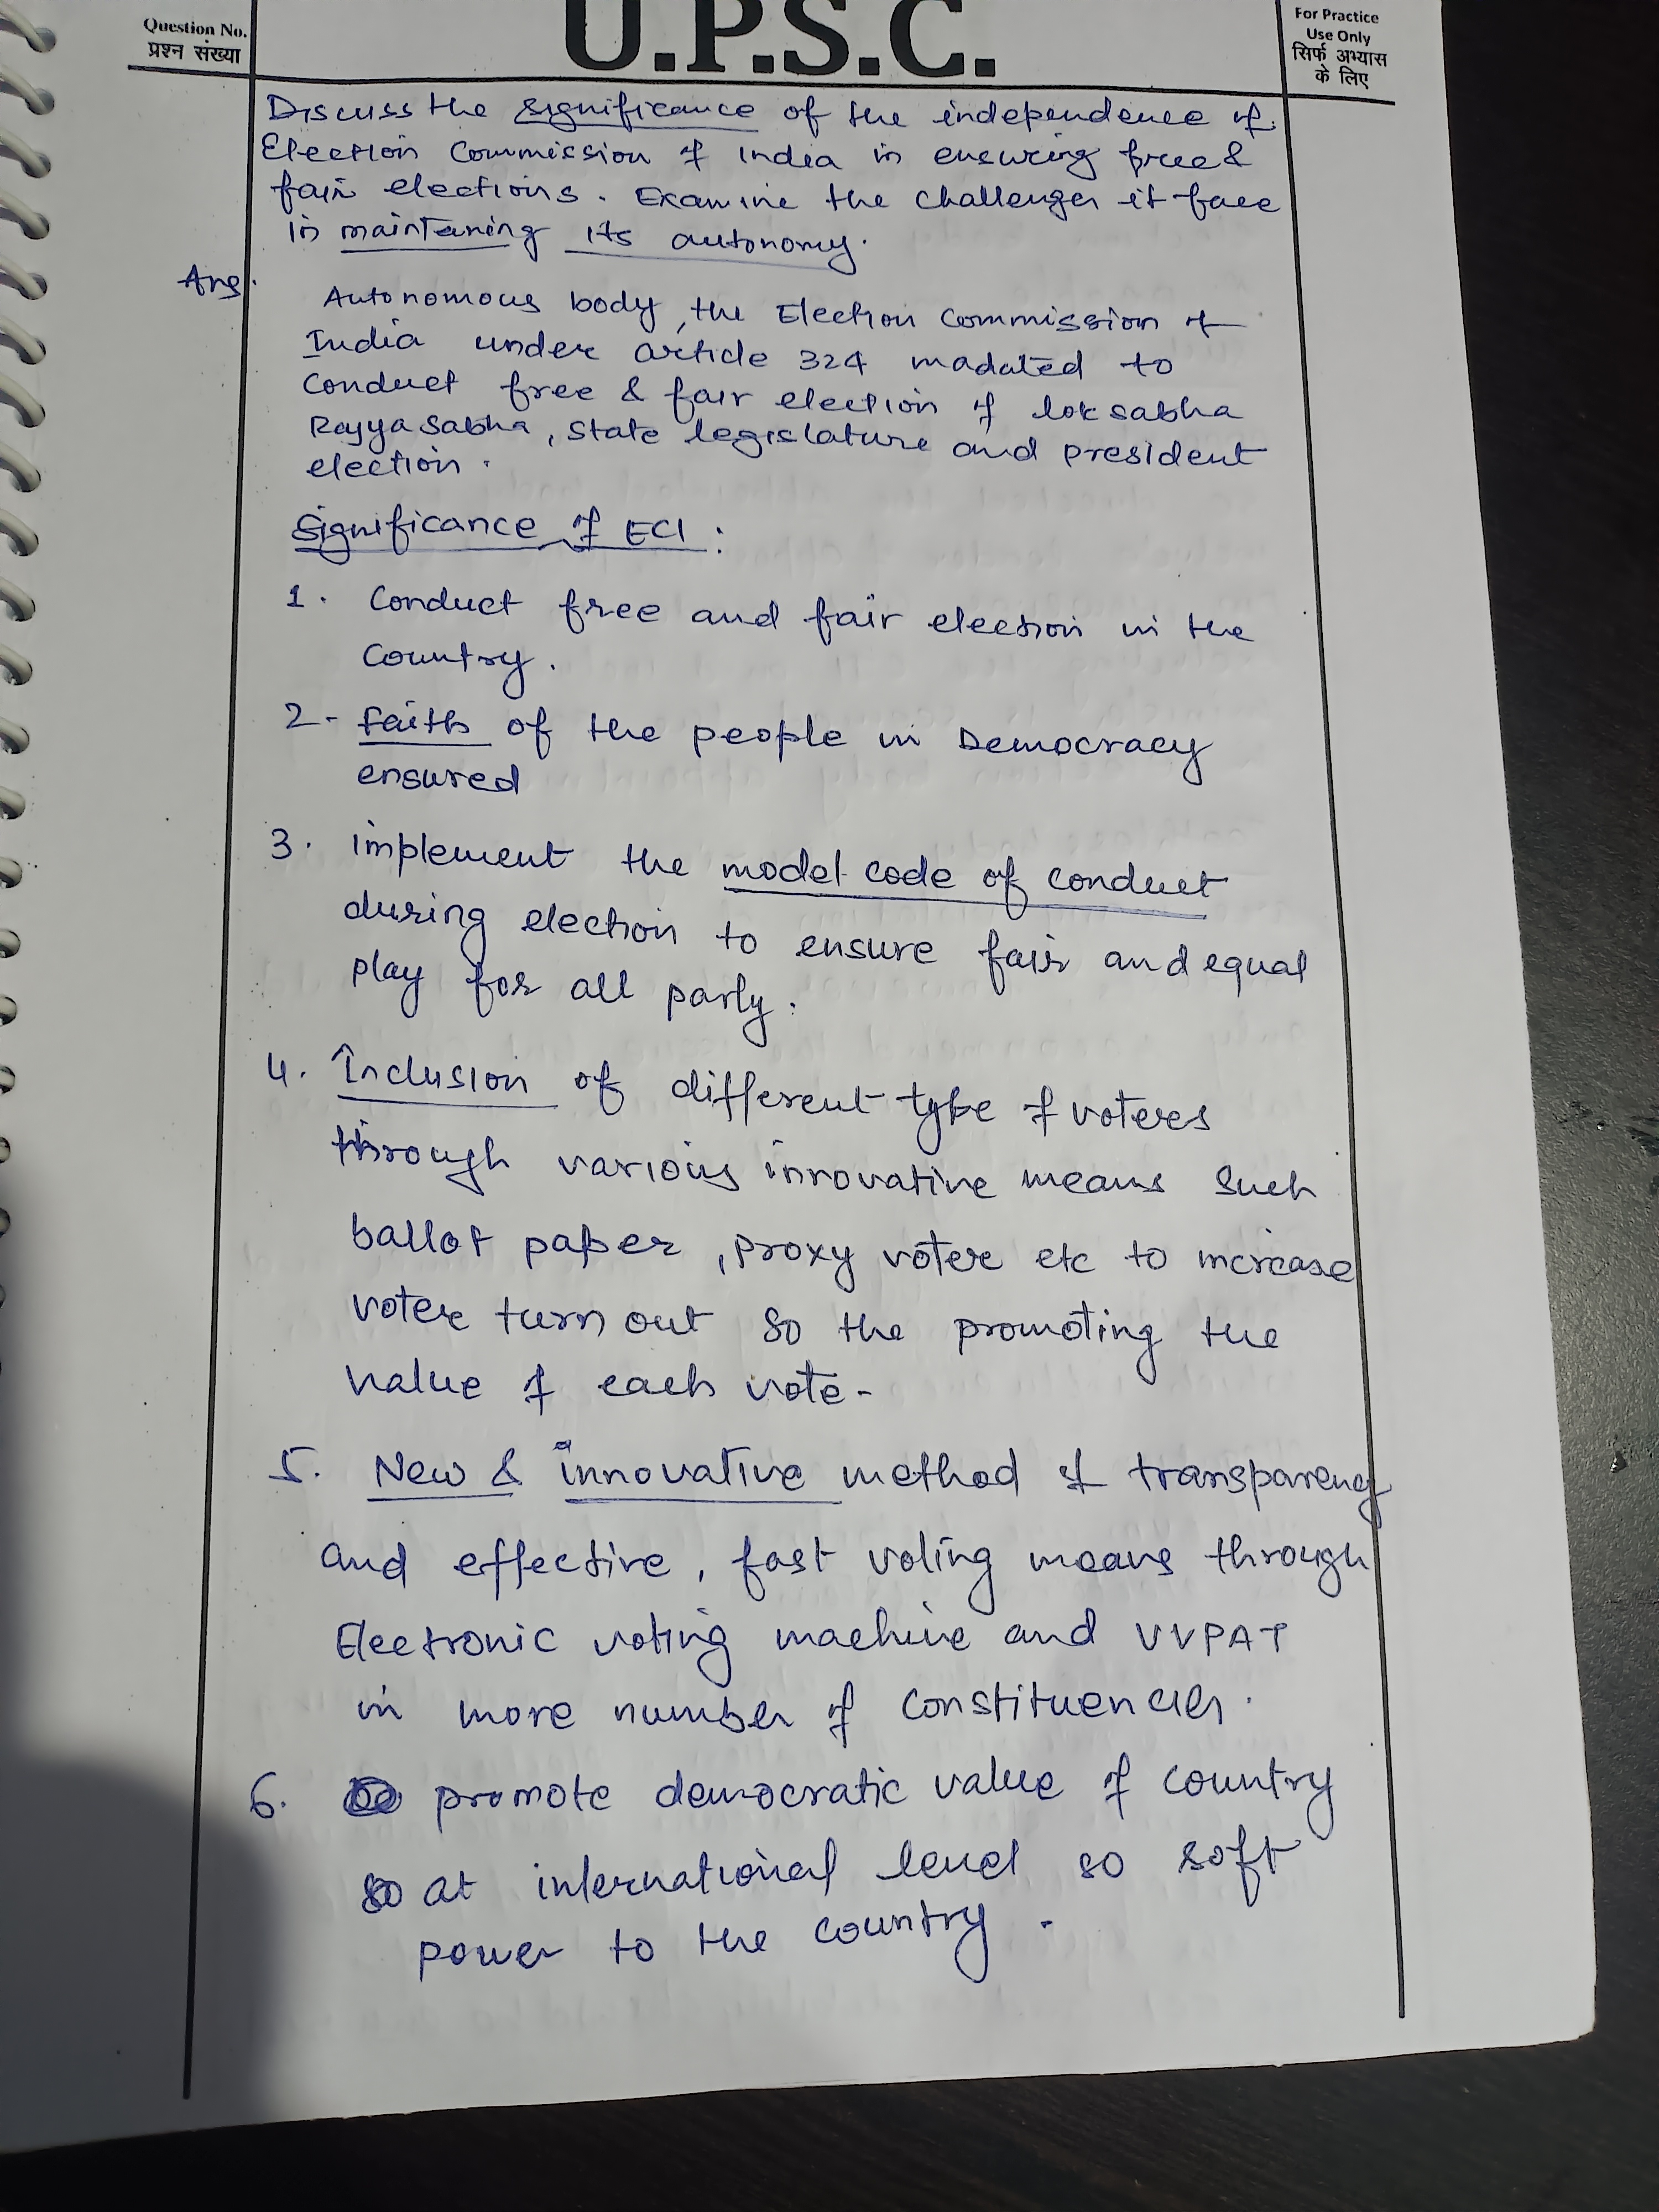 Question No.
प्रश्न संख्या
U.P.S.C.
For Practice
Use Only
सिर्फ अभ्यास
के लिए
Discuss the significance of the independence of
Election Commission of India in ensuring free &
fair elections. Examine the challenges it face
in maintaning its autonomy.
Ans.
Autonomous body, the Election Commission of
India under article 324 madated to
conduct free & fair election of lok sabha
Rajya Sabha, State legislature and president
election.
Significance of ECI :
1. Conduct free and fair election in the
country.
2- faith of the people in Democracy
ensured
3. implement the model code of conduct
during election to ensure fair and equal
play for all party.
4. Inclusion of different type of voters
through various innovative means such
ballot paper, proxy voter etc to increase
voter turn out so the promoting the
value of each vote-
5. New & innovative method of transparency
and effective, fast voting means through
Electronic voting machine and VVPAT
in more number of constituencies.
6. promote democratic value of country
so at international level so soft
power to the country.